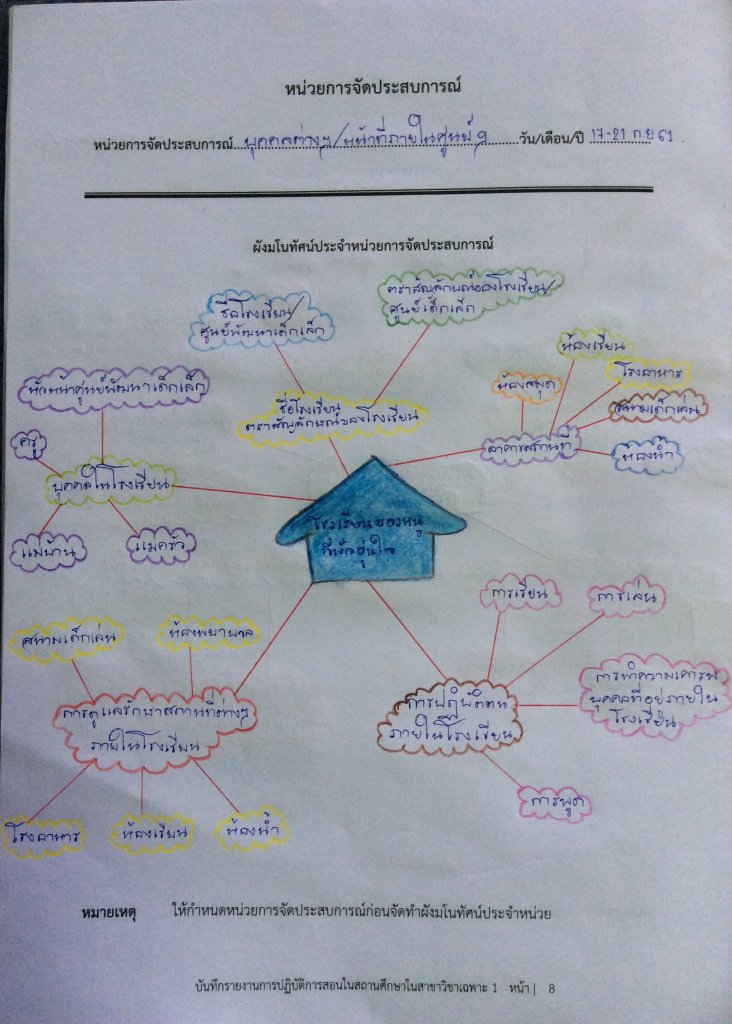 หน่วยการจัดประสบการณ์
หน่วยการจัดประสบการณ์ บุคคลต่างๆ/หน้าที่ภายในศูนย์ ฯ วัน/เดือน/ปี 17-21 ก.ย 61
ผังมโนทัศน์ประจำหน่วยการจัดประสบการณ์
ชื่อโรงเรียน/
ศูนย์พัฒนาเด็กเล็ก
ตราสัญลักษณ์ของโรงเรียน/
ศูนย์เด็กเล็ก
ชื่อโรงเรียน
ตราสัญลักษณ์ของโรงเรียน
ห้องสมุด
ห้องเรียน
โรงอาหาร
สนามเด็กเล่น
ห้องน้ำ
อาคารสถานที่
หัวหน้าศูนย์พัฒนาเด็กเล็ก
ครู
บุคคลในโรงเรียน
แม่บ้าน
แม่ครัว
โรงเรียนของหนู
ที่พักอุ่นใจ
สนามเด็กเล่น
ห้องพยาบาล
การดูแลรักษาสถานที่ต่างๆ
ภายในโรงเรียน
โรงอาหาร
ห้องเรียน
ห้องน้ำ
การเรียน
การเล่น
การปฏิบัติตน
ภายในโรงเรียน
การทำความเคารพ
บุคคลที่อยู่ภายใน
โรงเรียน
การพูด
หมายเหตุ ให้กำหนดหน่วยการจัดประสบการณ์ก่อนจัดทำผังมโนทัศน์ประจำหน่วย
บันทึกรายงานการปฏิบัติการสอนในสถานศึกษาในสาขาวิชาเฉพาะ 1 หน้า | 8